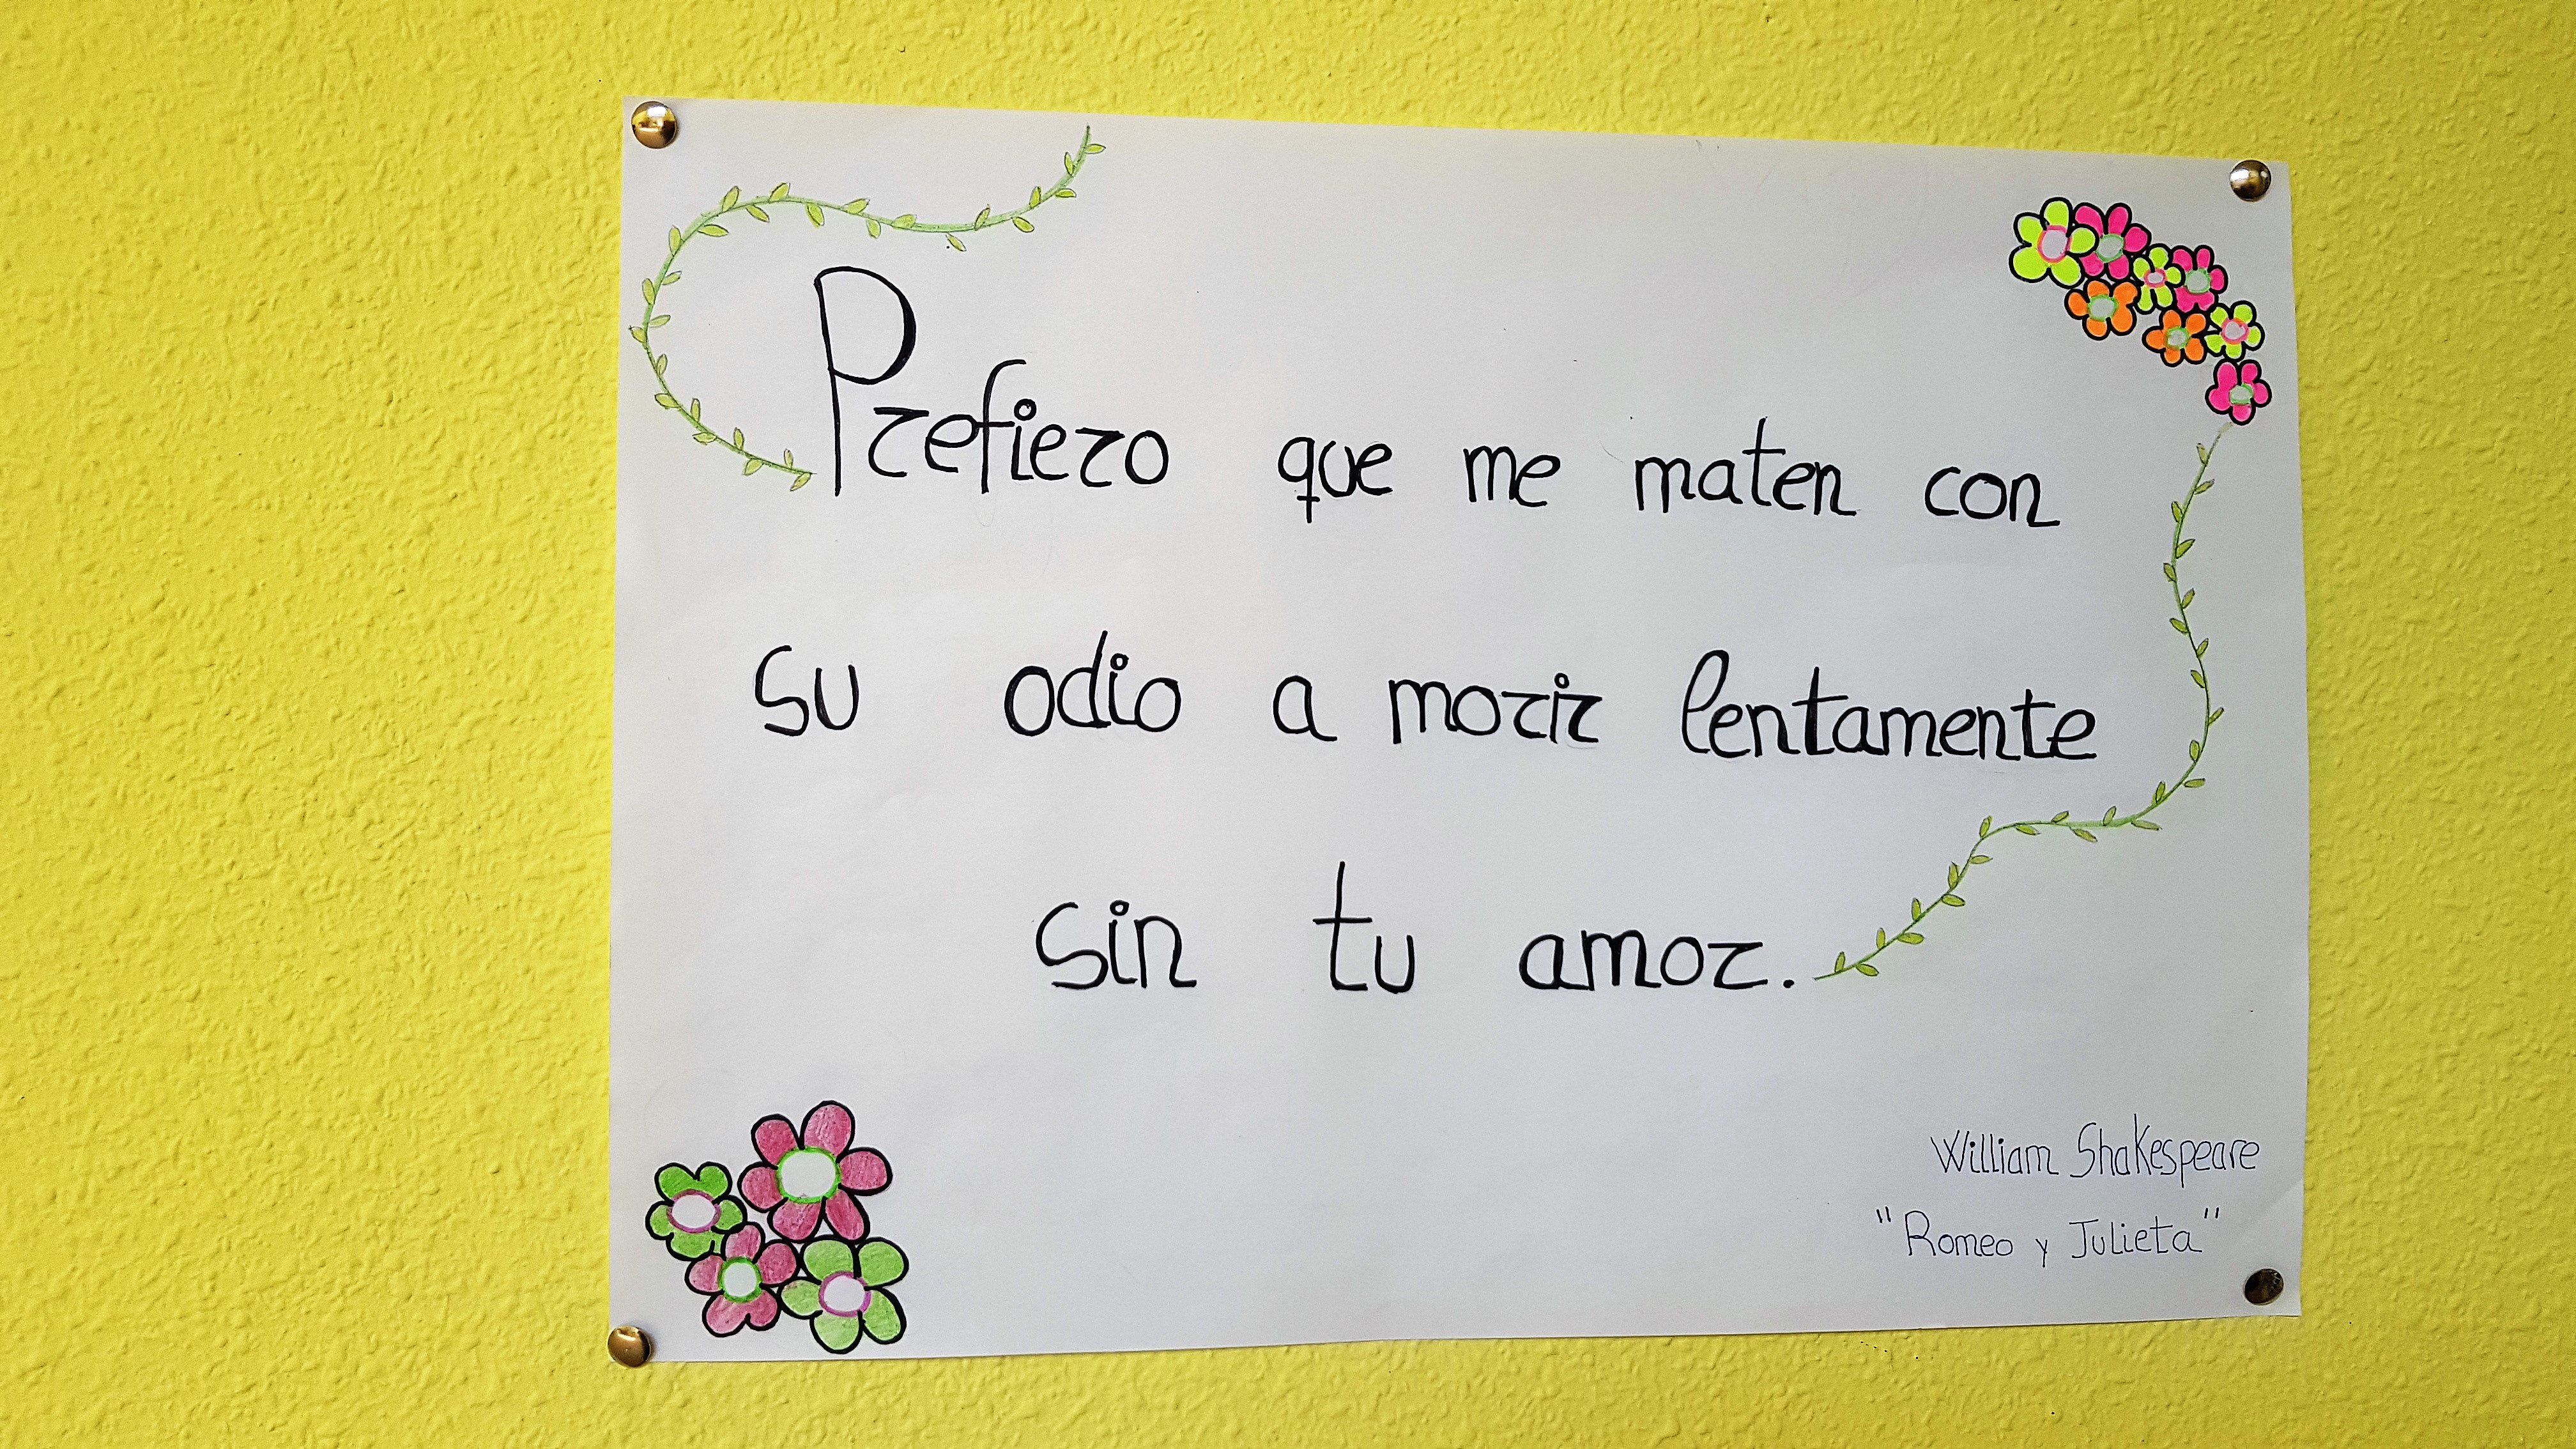 Prefiero que me maten con
su odio a morir lentamente
sin tu amor.
William Shakespeare
"Romeo y Julieta"